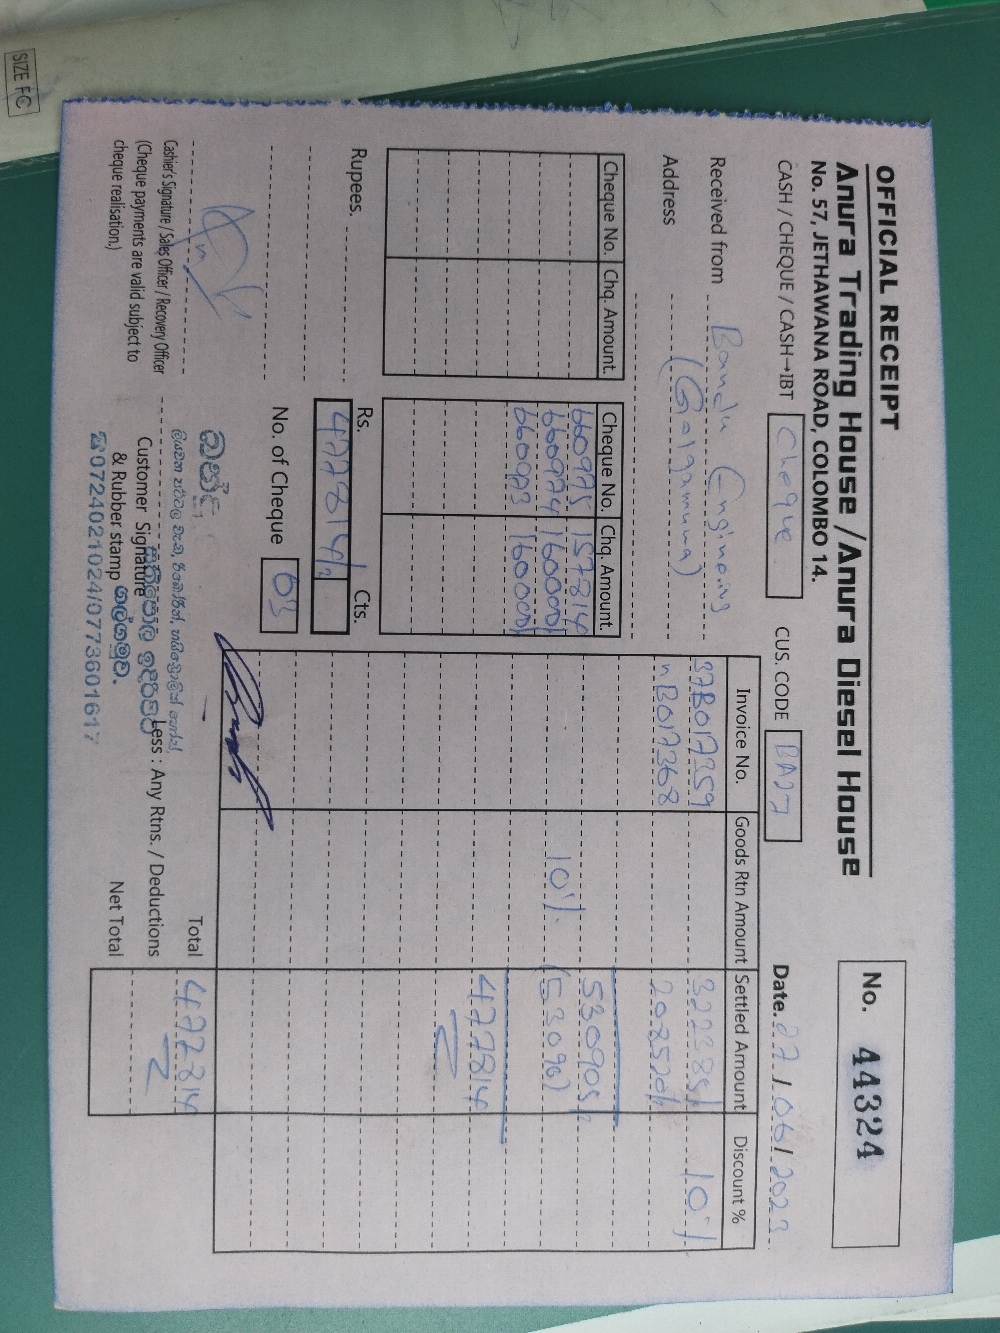 SIZE FC
OFFICIAL RECEIPT
No. 44324
Anura Trading House / Anura Diesel House
No. 57, JETHAWANA ROAD, COLOMBO 14.
CASH / CHEQUE / CASH→IBT Cheque CUS. CODE BA27 Date. 27/06/2023
Received from Bandu Engineering
Address (Galgamuwa)
Cheque No. Chq. Amount.
Cheque No. Chq. Amount.
660975 157814
660974 160000/
660973 160000/
Rupees.
Rs. Cts.
477814/
No. of Cheque 03
Invoice No. Goods Rtn Amount Settled Amount Discount %
37B017359 322385/ 10%
" B017368 208520/
530905/
10% (53090)
477814
Total 477814
Less : Any Rtns. / Deductions
Net Total
Cashier's Signature / Sales Officer / Recovery Officer
(Cheque payments are valid subject to
cheque realisation.)
Customer Signature
& Rubber stamp
ගල්ගමුව.
☎0724021024/0773601617